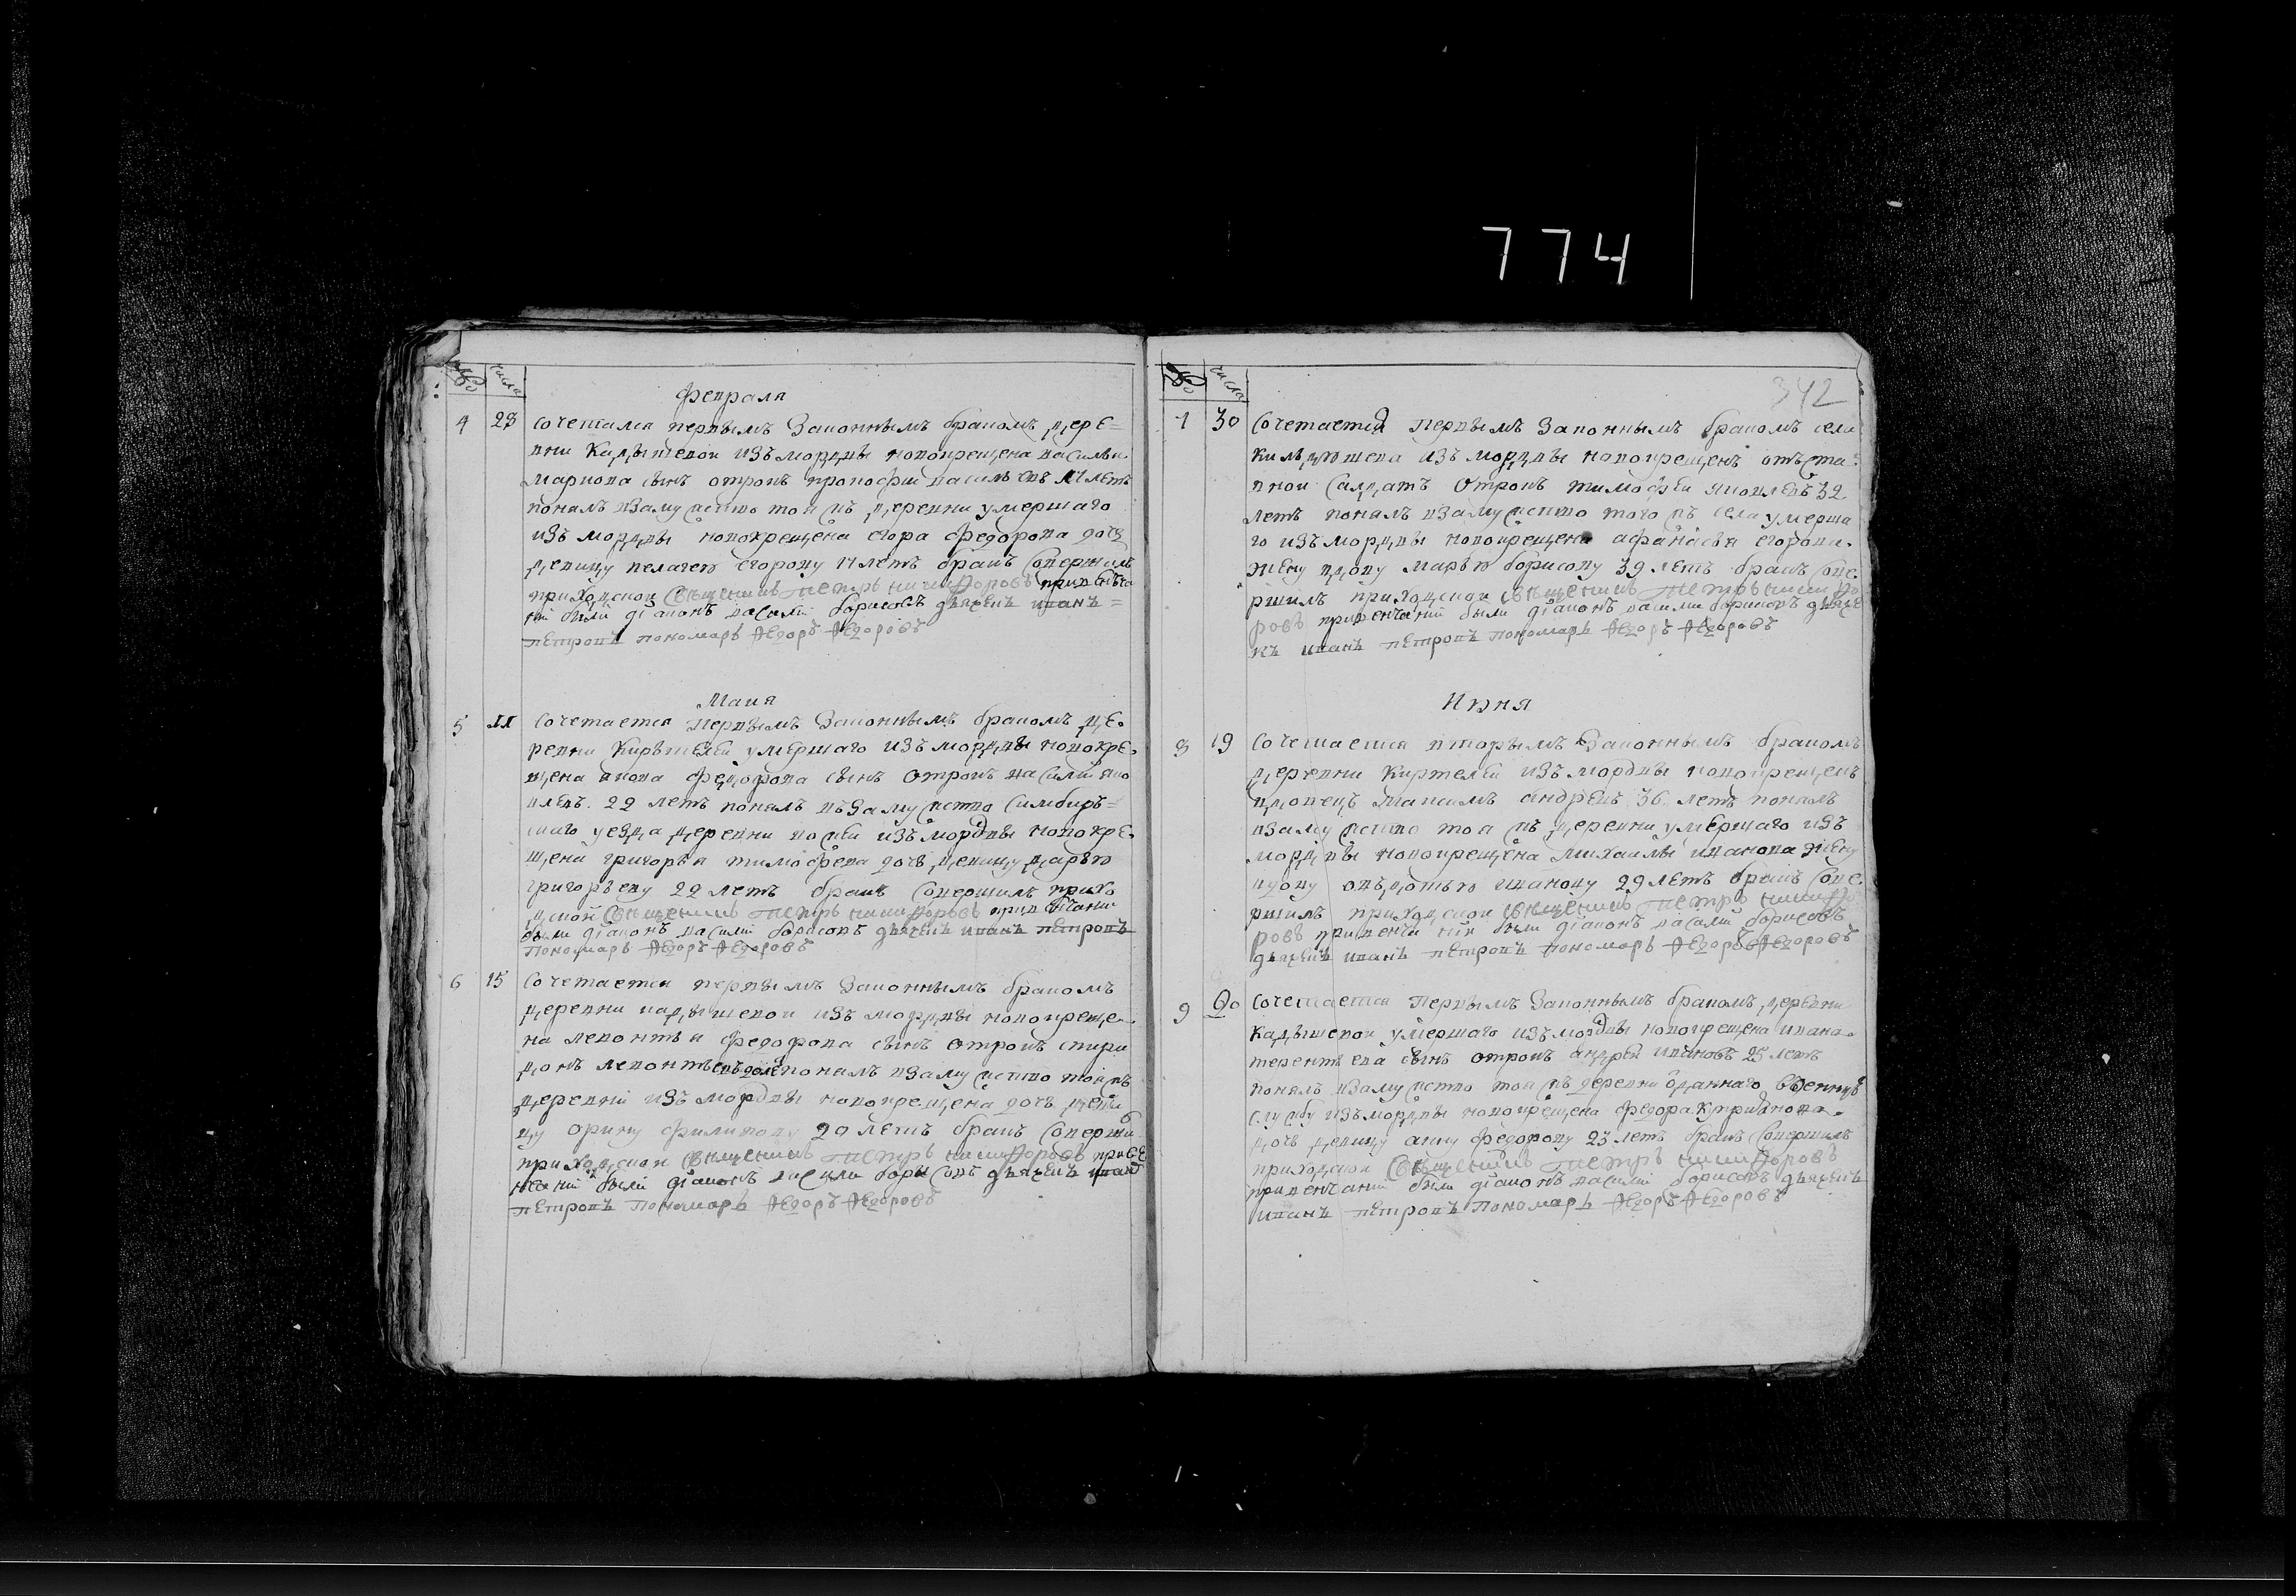 774
342
числа
Февраля
4 28 Сочетался первымъ Законнымъ бракомъ дере=
вни Кадышевои изъ мордвы новокрещена василья
маркова сынъ отрокъ прокофии василъевъ 17 летъ
понялъ взамужство тои жъ деревни умершаго
изъ мордвы новокрещена егора федорова дочь
девицу пелагею егорову 17 летъ бракъ совершилъ
приходскои священникъ Петръ никифоровъ при венча
нии были діаконъ василии борисовъ дьячекъ иванъ =
петровъ пономарь Федоръ Федоровъ
Маия
5 11 Сочетается Первымъ Законнымъ бракомъ де.
ревни Киртелеи умершаго изъ мордвы новокре.
щена якова федорова сынъ отрокъ василии яко
влевъ. 22 летъ понялъ въ Замужство Симбирь=
скаго уезда деревни изъ мордвы новокре.
щена григорья тимофеева дочь девицу дарью
григорьеву 22 летъ бракъ совершилъ прихо
дской священникъ Петръ никифоровъ при венчании
были діаконъ василии борисовъ дьячекъ иванъ петровъ
Пономарь Федоръ Федоровъ
6 15 Сочетается первымъ Законнымъ бракомъ
деревни кадышевои изъ мордвы новокреще
на леонтья федорова сынъ отрокъ спири
донъ леонтьевъ понялъ взамужство тои жъ
деревни изъ мордвы новокрещена дочь деви
цу орину филипову 20 летъ бракъ соверши
приходскои священникъ Петръ никифоровъ приве
нчании были діаконъ василии борисовъ дьячекъ иванъ
петровъ Пономарь Федоръ Федоровъ
числа
7 30 Сочетается Первымъ Законнымъ бракомъ села
изъ мордвы новокрещенъ отъста
вной Салдатъ Отрокъ тимофеи яковлевъ 32
летъ понялъ взамужство того жъ села умерша
го изъ мордвы новокрещена афанасья егорова.
жену вдову марью борисову 39 летъ бракъ сове.
ршилъ приходскои священникъ Петръ никифо
ровъ привенчании были діаконъ василии борисовъ дьяче
къ иванъ петровъ пономарь Федоръ Федоровъ
Июня
8 19 Сочетается вторымъ Законнымъ бракомъ
деревни Киртелеи изъ мордвы новокрещенъ
вдовецъ максимъ андреевъ 36 летъ понялъ
взамужство тоя жъ деревни умершаго изъ
мордвы новокрещена михаилы иванова жену
вдову авдотью иванову 29 летъ бракъ сове.
ршилъ приходскои священникъ Петръ никифо
ровъ привенчании были діаконъ василии борисовъ
дьячекъ иванъ петровъ Пономарь Федоръ Федоровъ
9 20 Сочетается Первымъ Законнымъ бракомъ деревни
Кадышевои умершаго изъ мордвы новокрещена ивана.
терентьева сынъ отрокъ андреи ивановъ 25 летъ
понялъ взамужство тои жъ деревни отданнаго ввоенную
службу изъ мордвы новокрещена федора куприянова.
дочь девицу анну федорову 23 летъ бракъ совершилъ
приходскои священникъ Петръ никифоровъ
привенчании были діаконъ василии борисовъ дьячекъ
иванъ петровъ Пономарь Федоръ Федоровъ